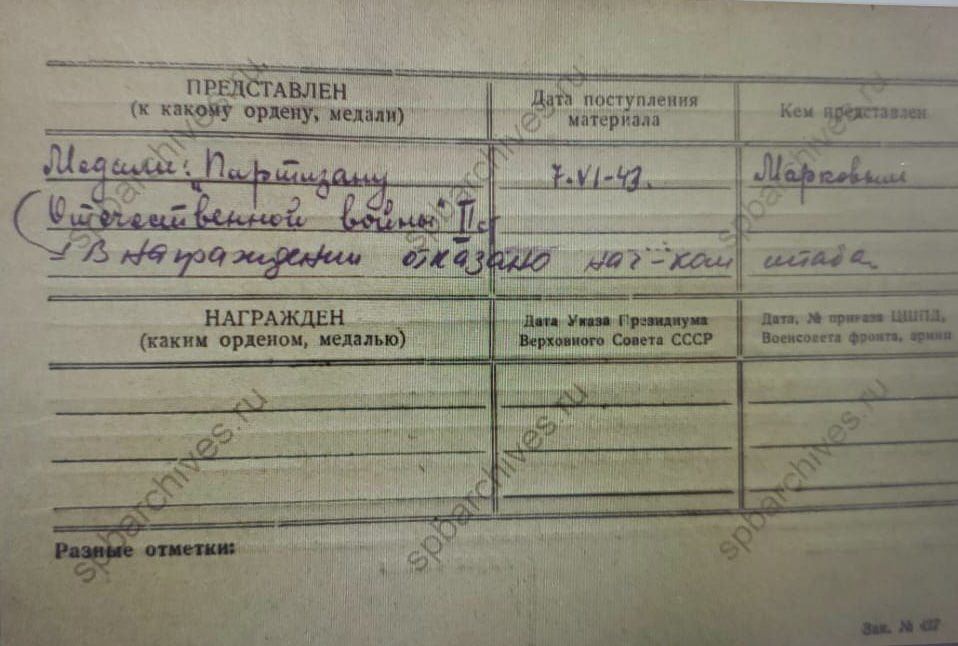 ПРЕДСТАВЛЕН
(к какому ордену, медали)
Дата поступления
материала
Кем представлен
Медали: "Партизану
Отечественной войны" II ст
7.VI-43.
Марковым
В награждении отказано нач-ком штаба.
НАГРАЖДЕН
(каким орденом, медалью)
Дата Указа Президиума
Верховного Совета СССР
Дата, № приказа ЦШПД,
Военсовета фронта, армии
Разные отметки:
Зак. № 437
spbarchives.ru
spbarchives.ru
spbarchives.ru
spbarchives.ru
spbarchives.ru
spbarchives.ru